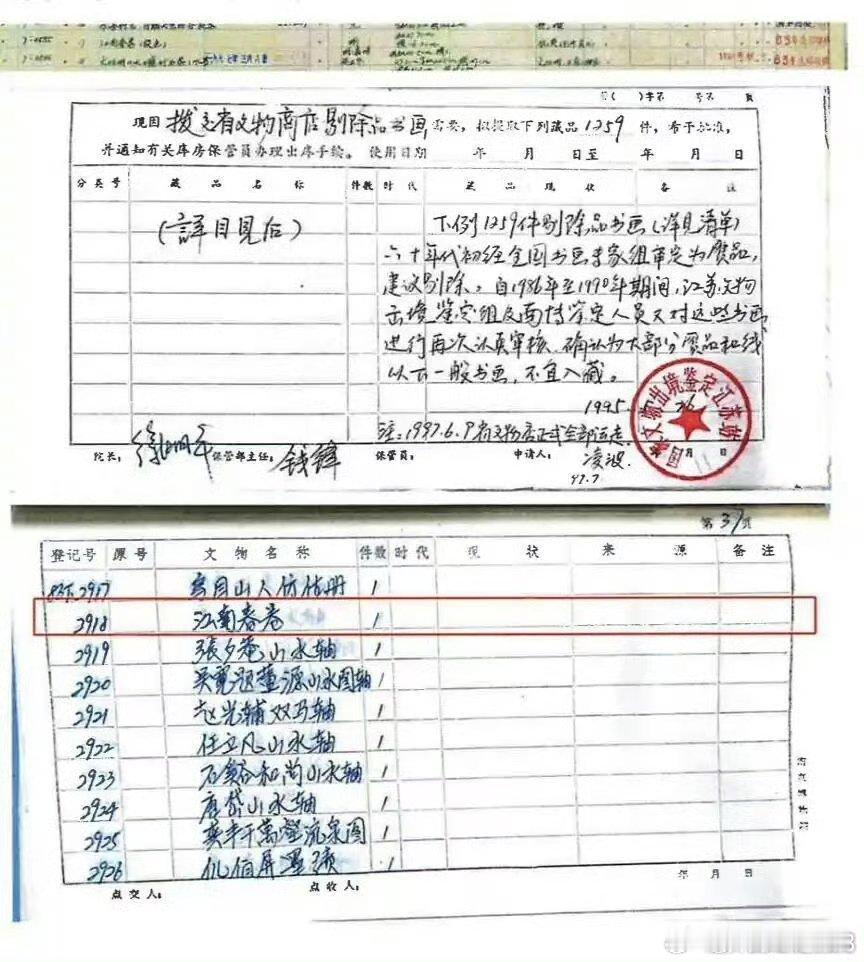 字( )字第 号第 页
现因 拨交省文物商店剔除品书画 需要,拟提取下列藏品1259件,希予批准,
并通知有关库房保管员办理出库手续。 使用日期 年 月 日至 年 月 日
分类号 藏品名称 件数 时代 藏品现状 备注
(詳目見后)
下列1259件剔除品书画(详見清单)
六十年代初经全国书画专家组审定为赝品,
建议剔除。自1986年至1990年期间,江苏文物
出境鉴定组及南博鉴定人员又对这些书画
进行再次认真审核,确认为大部分赝品和线
以下一般书画,不宜入藏。
1995
注:1997.6.9省文物店正式全部运走
院长: 徐湖平 保管部主任: 钱锋 保管员: 申请人: 凌波
97.7
国家文物出境鉴定江苏站
第37页
登记号 原号 文物名称 件数 时代 现状 来源 备注
2917 仿古册 1
2918 江南春卷 1
2919 張夕庵山水轴 1
2920 吴寬题董源山水图轴 1
2921 赵光辅双马轴 1
2922 任立凡山水轴 1
2923 石谿和尚山水轴 1
2924 唐岱山水轴 1
2925 千萬壑流泉图 1
2926 1
点交人: 点收人: 年 月 日